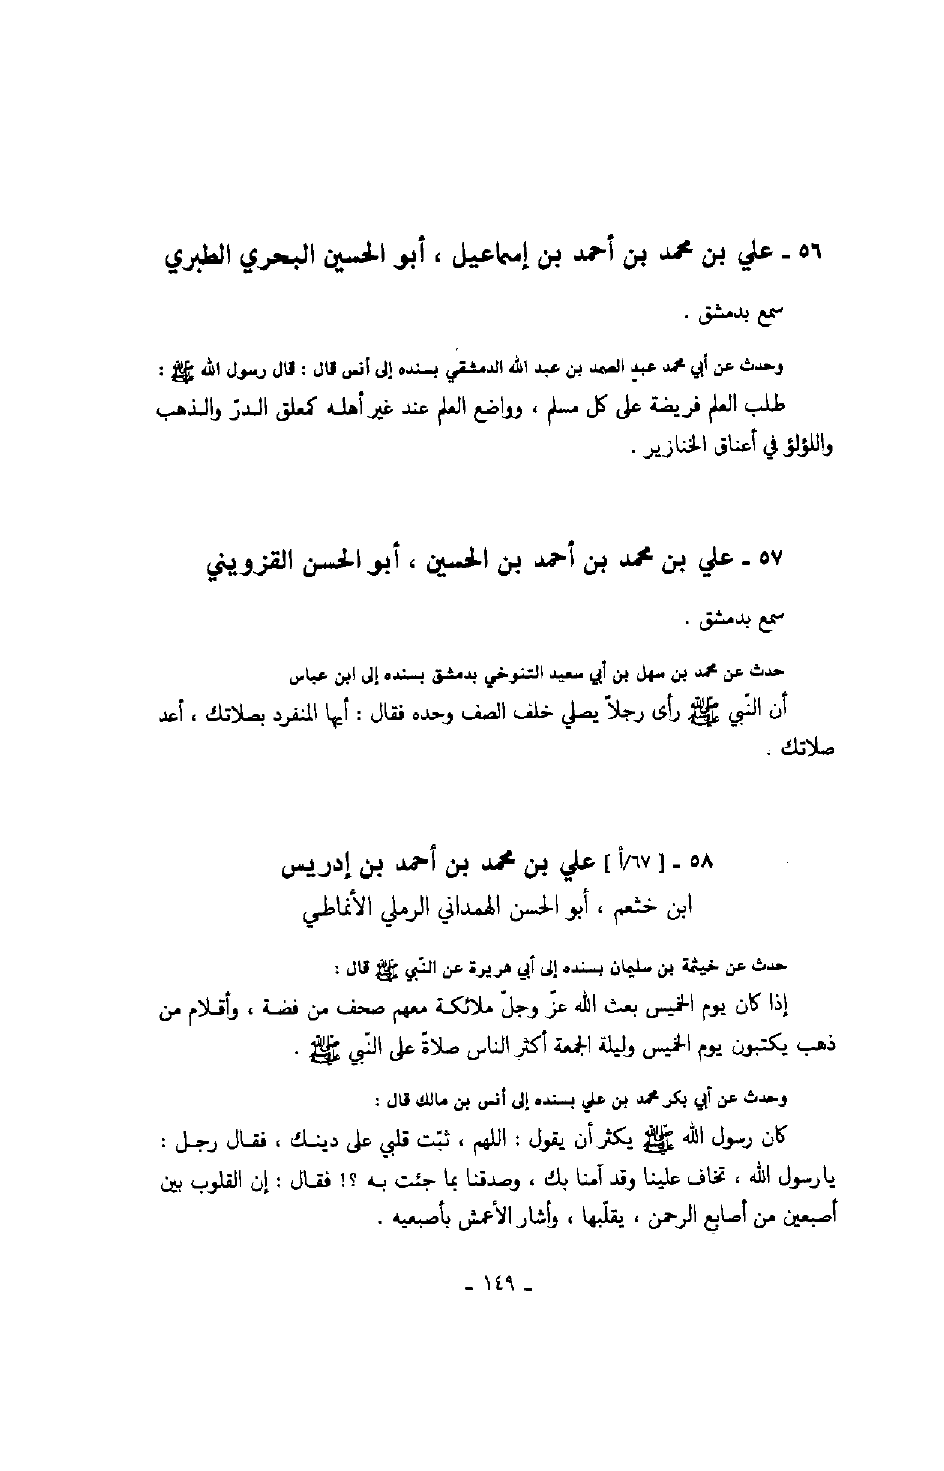 ٥٦ ـ علي بن محمد بن أحمد بن إسماعيل ، أبو الحسين البحري الطبري
سمع بدمشق .
وحدث عن أبي محمد عبد الصمد بن عبد الله الدمشقي بسنده إلى أنس قال : قال رسول الله ﷺ :
طلب العلم فريضة على كل مسلم ، وواضع العلم عند غير أهله كمعلق الدرّ والذهب
واللؤلؤ في أعناق الخنازير .
٥٧ ـ علي بن محمد بن أحمد بن الحسين ، أبو الحسن القزويني
سمع بدمشق .
حدث عن محمد بن سهل بن أبي سعيد التنوخي بدمشق بسنده إلى ابن عباس
أن النّبي ﷺ رأى رجلاً يصلي خلف الصف وحده فقال : أيها المنفرد بصلاتك ، أعد
صلاتك .
٥٨ ـ [ ٦٧/أ ] علي بن محمد بن أحمد بن إدريس
ابن خثعم ، أبو الحسن الهمداني الرملي الأنماطي
حدث عن خيثمة بن سليمان بسنده إلى أبي هريرة عن النّبي ﷺ قال :
إذا كان يوم الخميس بعث الله عزّ وجلّ ملائكة معهم صحف من فضة ، وأقلام من
ذهب يكتبون يوم الخميس وليلة الجمعة أكثر الناس صلاةً على النّبي ﷺ .
وحدث عن أبي بكر محمد بن علي بسنده إلى أنس بن مالك قال :
كان رسول الله ﷺ يكثر أن يقول : اللهم ، ثبّت قلبي على دينك ، فقال رجل :
يا رسول الله ، تخاف علينا وقد آمنا بك ، وصدقنا بما جئت به ؟! فقال : إن القلوب بين
أصبعين من أصابع الرحمن ، يقلّبها ، وأشار الأعمش بأصبعيه .
ـ ١٤٩ ـ